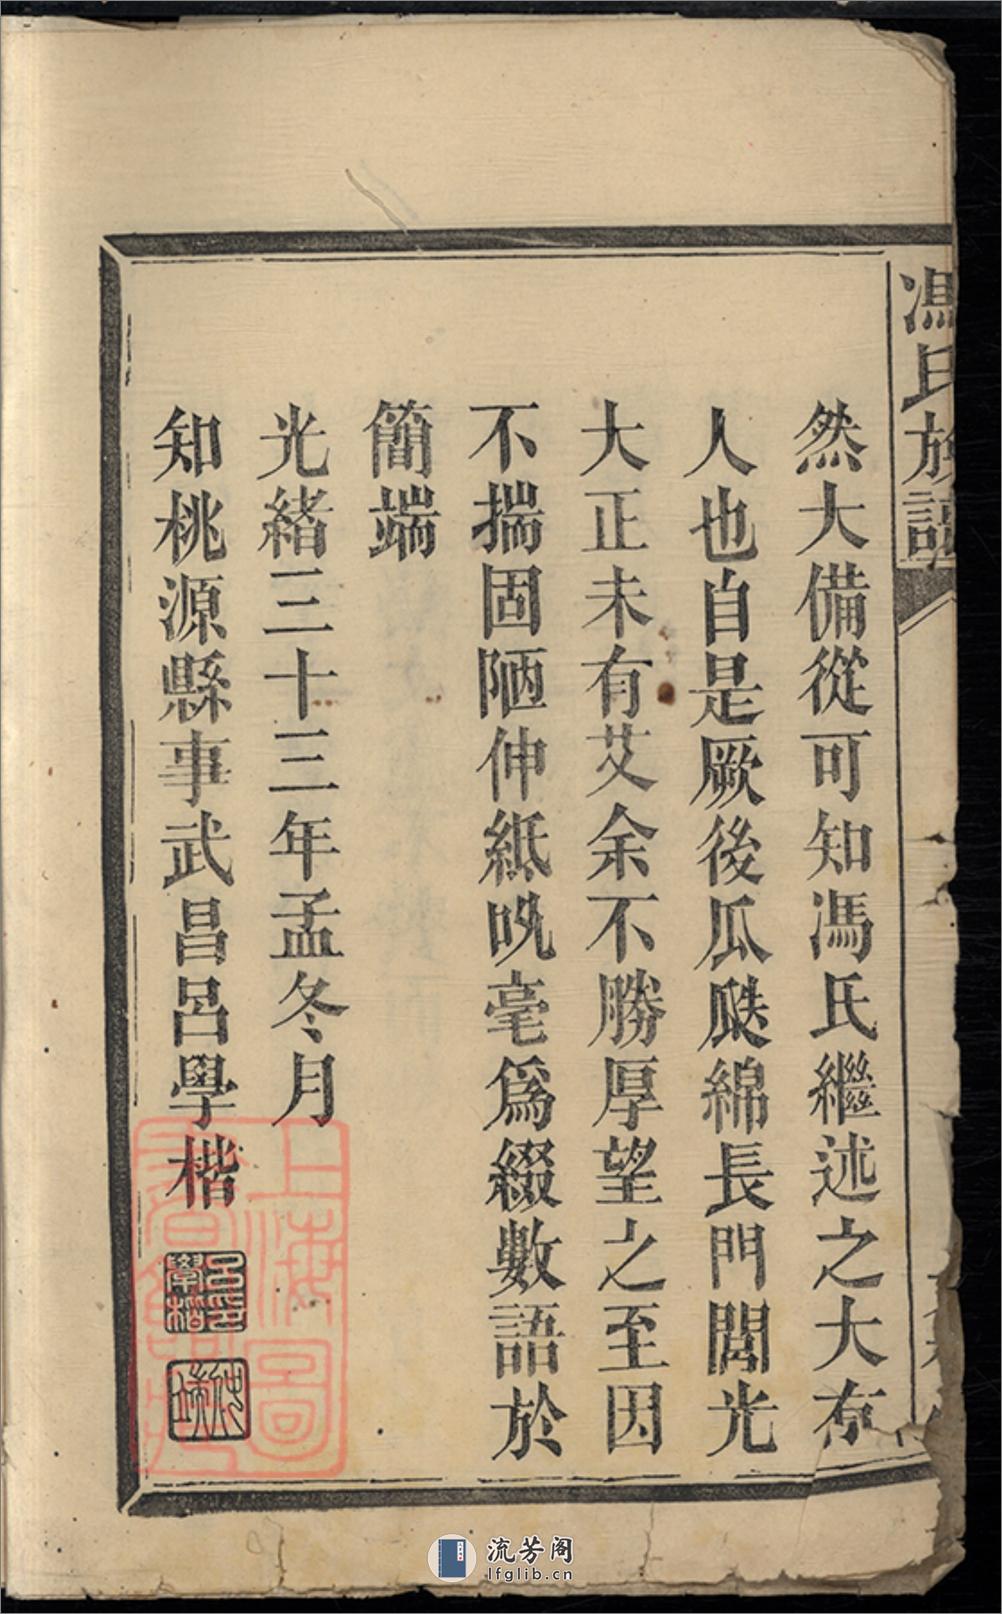 馮氏族譜
然大備從可知馮氏繼述之大有
人也自是厥後瓜瓞綿長門閭光
大正未有艾余不勝厚望之至因
不揣固陋伸紙吮毫爲綴數語於
簡端
光緒三十三年孟冬月
知桃源縣事武昌呂學楷
呂印學楷
上海圖書館藏
流芳阁
lfglib.cn